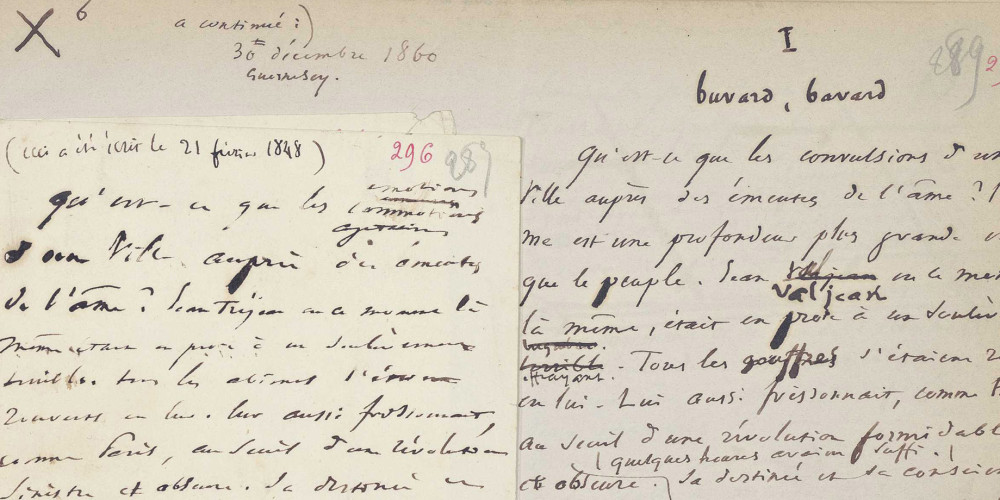 6
a continué :)
30 décembre 1860
Guernesey.
(ceci a été écrit le 21 février 1848)
296
289
Qu'est-ce que les
émotions
commotions
agitations
d'une Ville auprès des émeutes
de l'âme ? Jean Tréjean en ce moment là
même était en proie à un soulèvement
terrible. tous les abîmes s'étaient
rouverts en lui. lui aussi frissonnait,
comme Paris, au seuil d'une révolution
sinistre et obscure. Sa destinée et
I
289
2
buvard, bavard
Qu'est-ce que les convulsions d'un
Ville auprès des émeutes de l'âme ? l
me est une profondeur plus grande
que le peuple. Jean valjean en ce mom
Valjean
là même, était en proie à un soulèv
terrible. Tous les gouffres s'étaient r
effrayant.
en lui. Lui aussi frissonnait, comme P
au seuil d'une révolution formidabl
(quelques heures avaient suffi.)
et obscure. Sa destinée et sa conscien